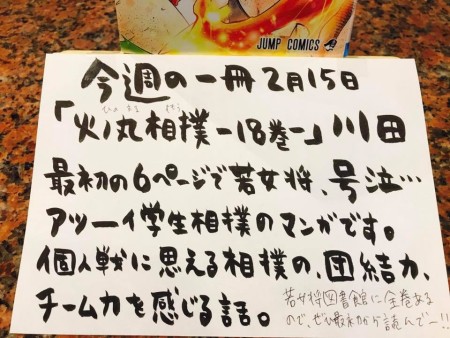 JUMP COMICS
今週の一冊2月15日
ひのまる ずもう
「火ノ丸相撲-18巻-」川田
最初の6ページで若女将、号泣…
アツーイ学生相撲のマンガです。
個人戦に思える相撲の、団結力、
チーム力を感じる話。
若女将図書館に全巻ある
ので、ぜひ最初から読んでー!!